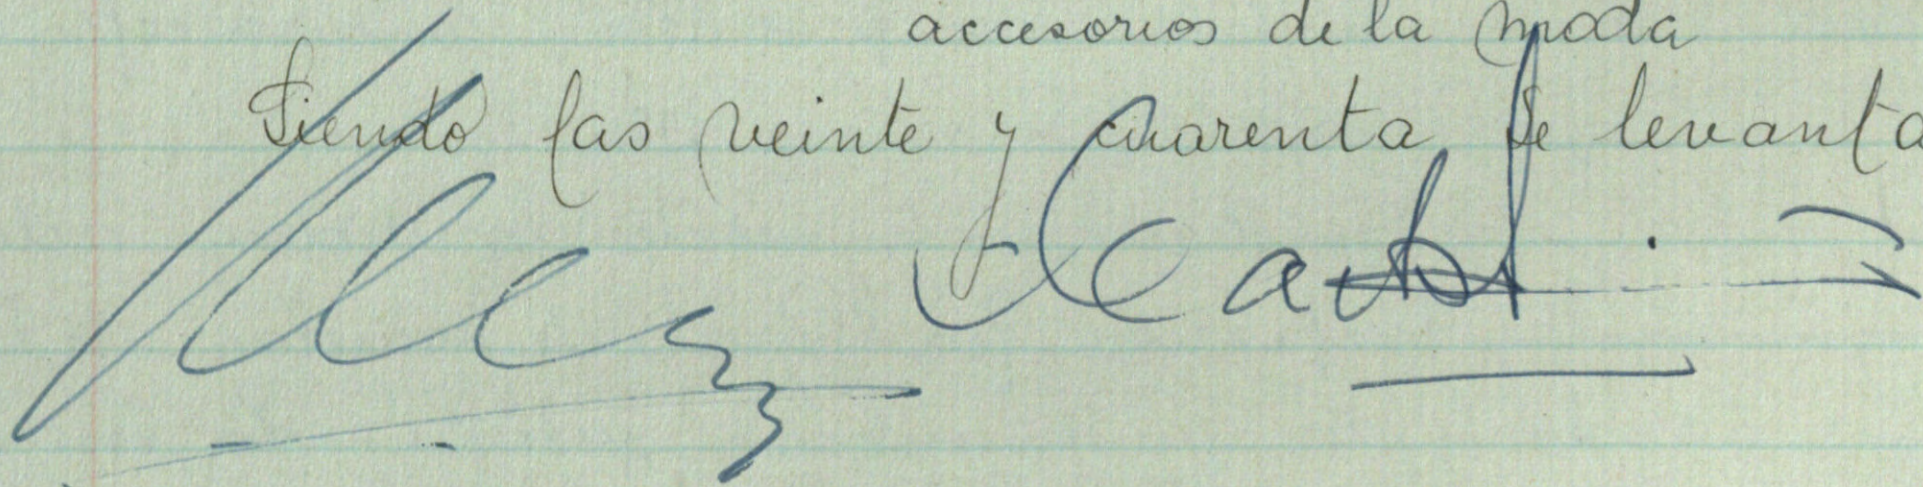 accesorios de la moda
Siendo las veinte y cuarenta se levanta